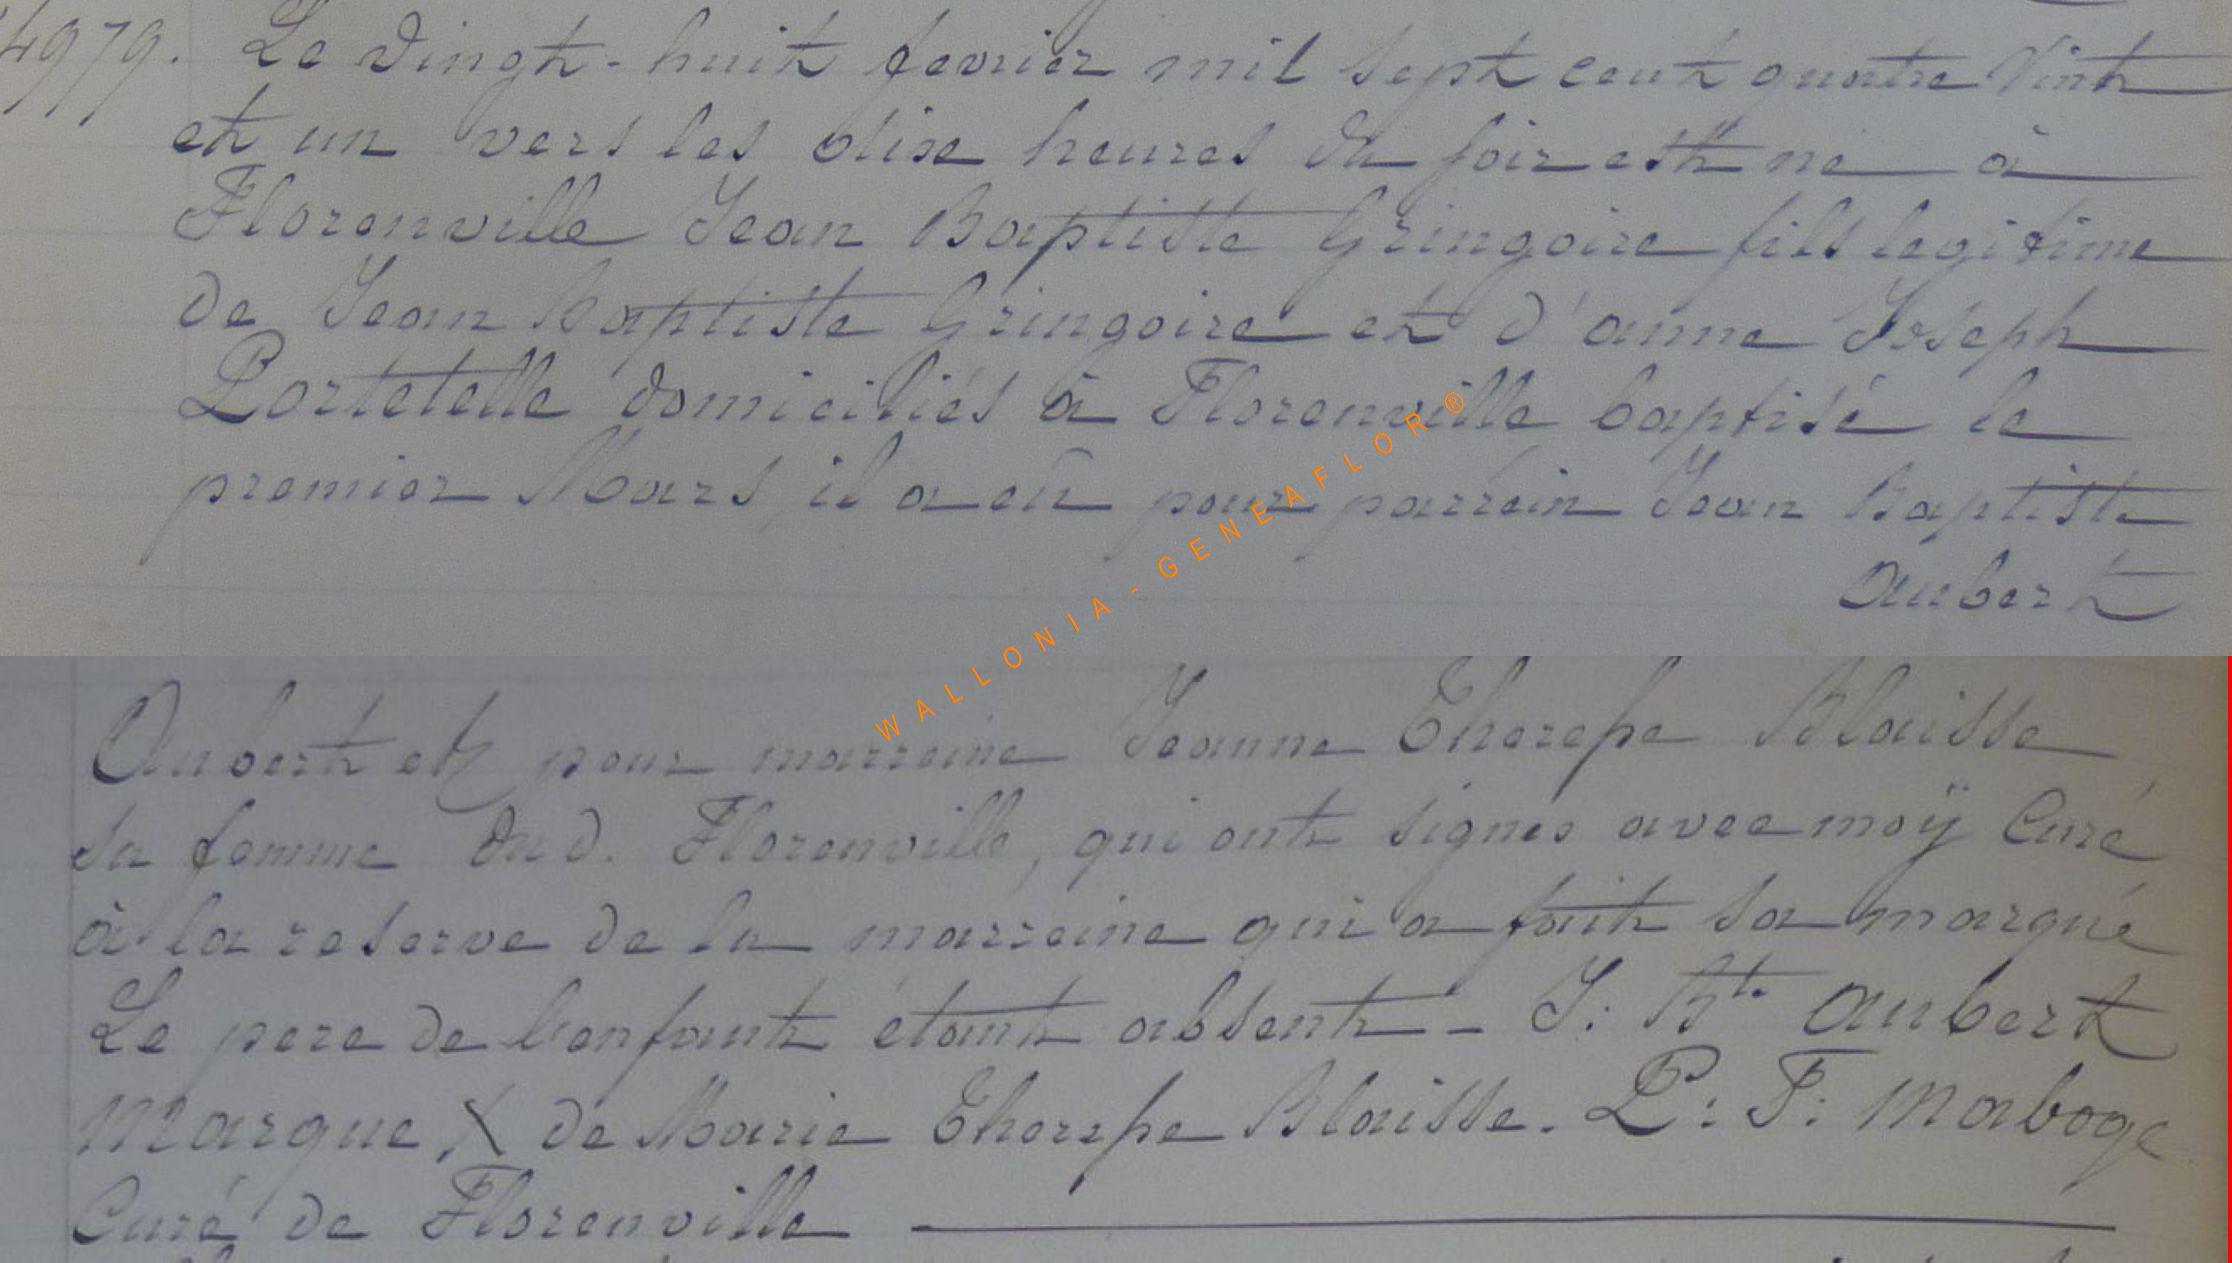 4979. Le vingt-huit fevrier mil sept cent quatre vint
et un vers les dixe heures du soir est né à
Florenville Jean Baptiste Gringoire fils legitime
de Jean Baptiste Gringoire et d'anne Joseph
Portetelle domiciliés à Florenville baptisé le
premier Mars, il a eû pour parrein Jean Baptiste
Aubert
WALLONIA - GENEAFLOR ®
Aubert et pour marreine Jeanne Therese Blaisse
sa femme dud. Florenville, qui ont signés avec moÿ Curé
à la reserve de la marreine qui a fait sa marque
Le pere de l'enfant étant absent - J: Bte Aubert
Marque X de Marie Therese Blaisse. P: F: Maboge
Curé de Florenville